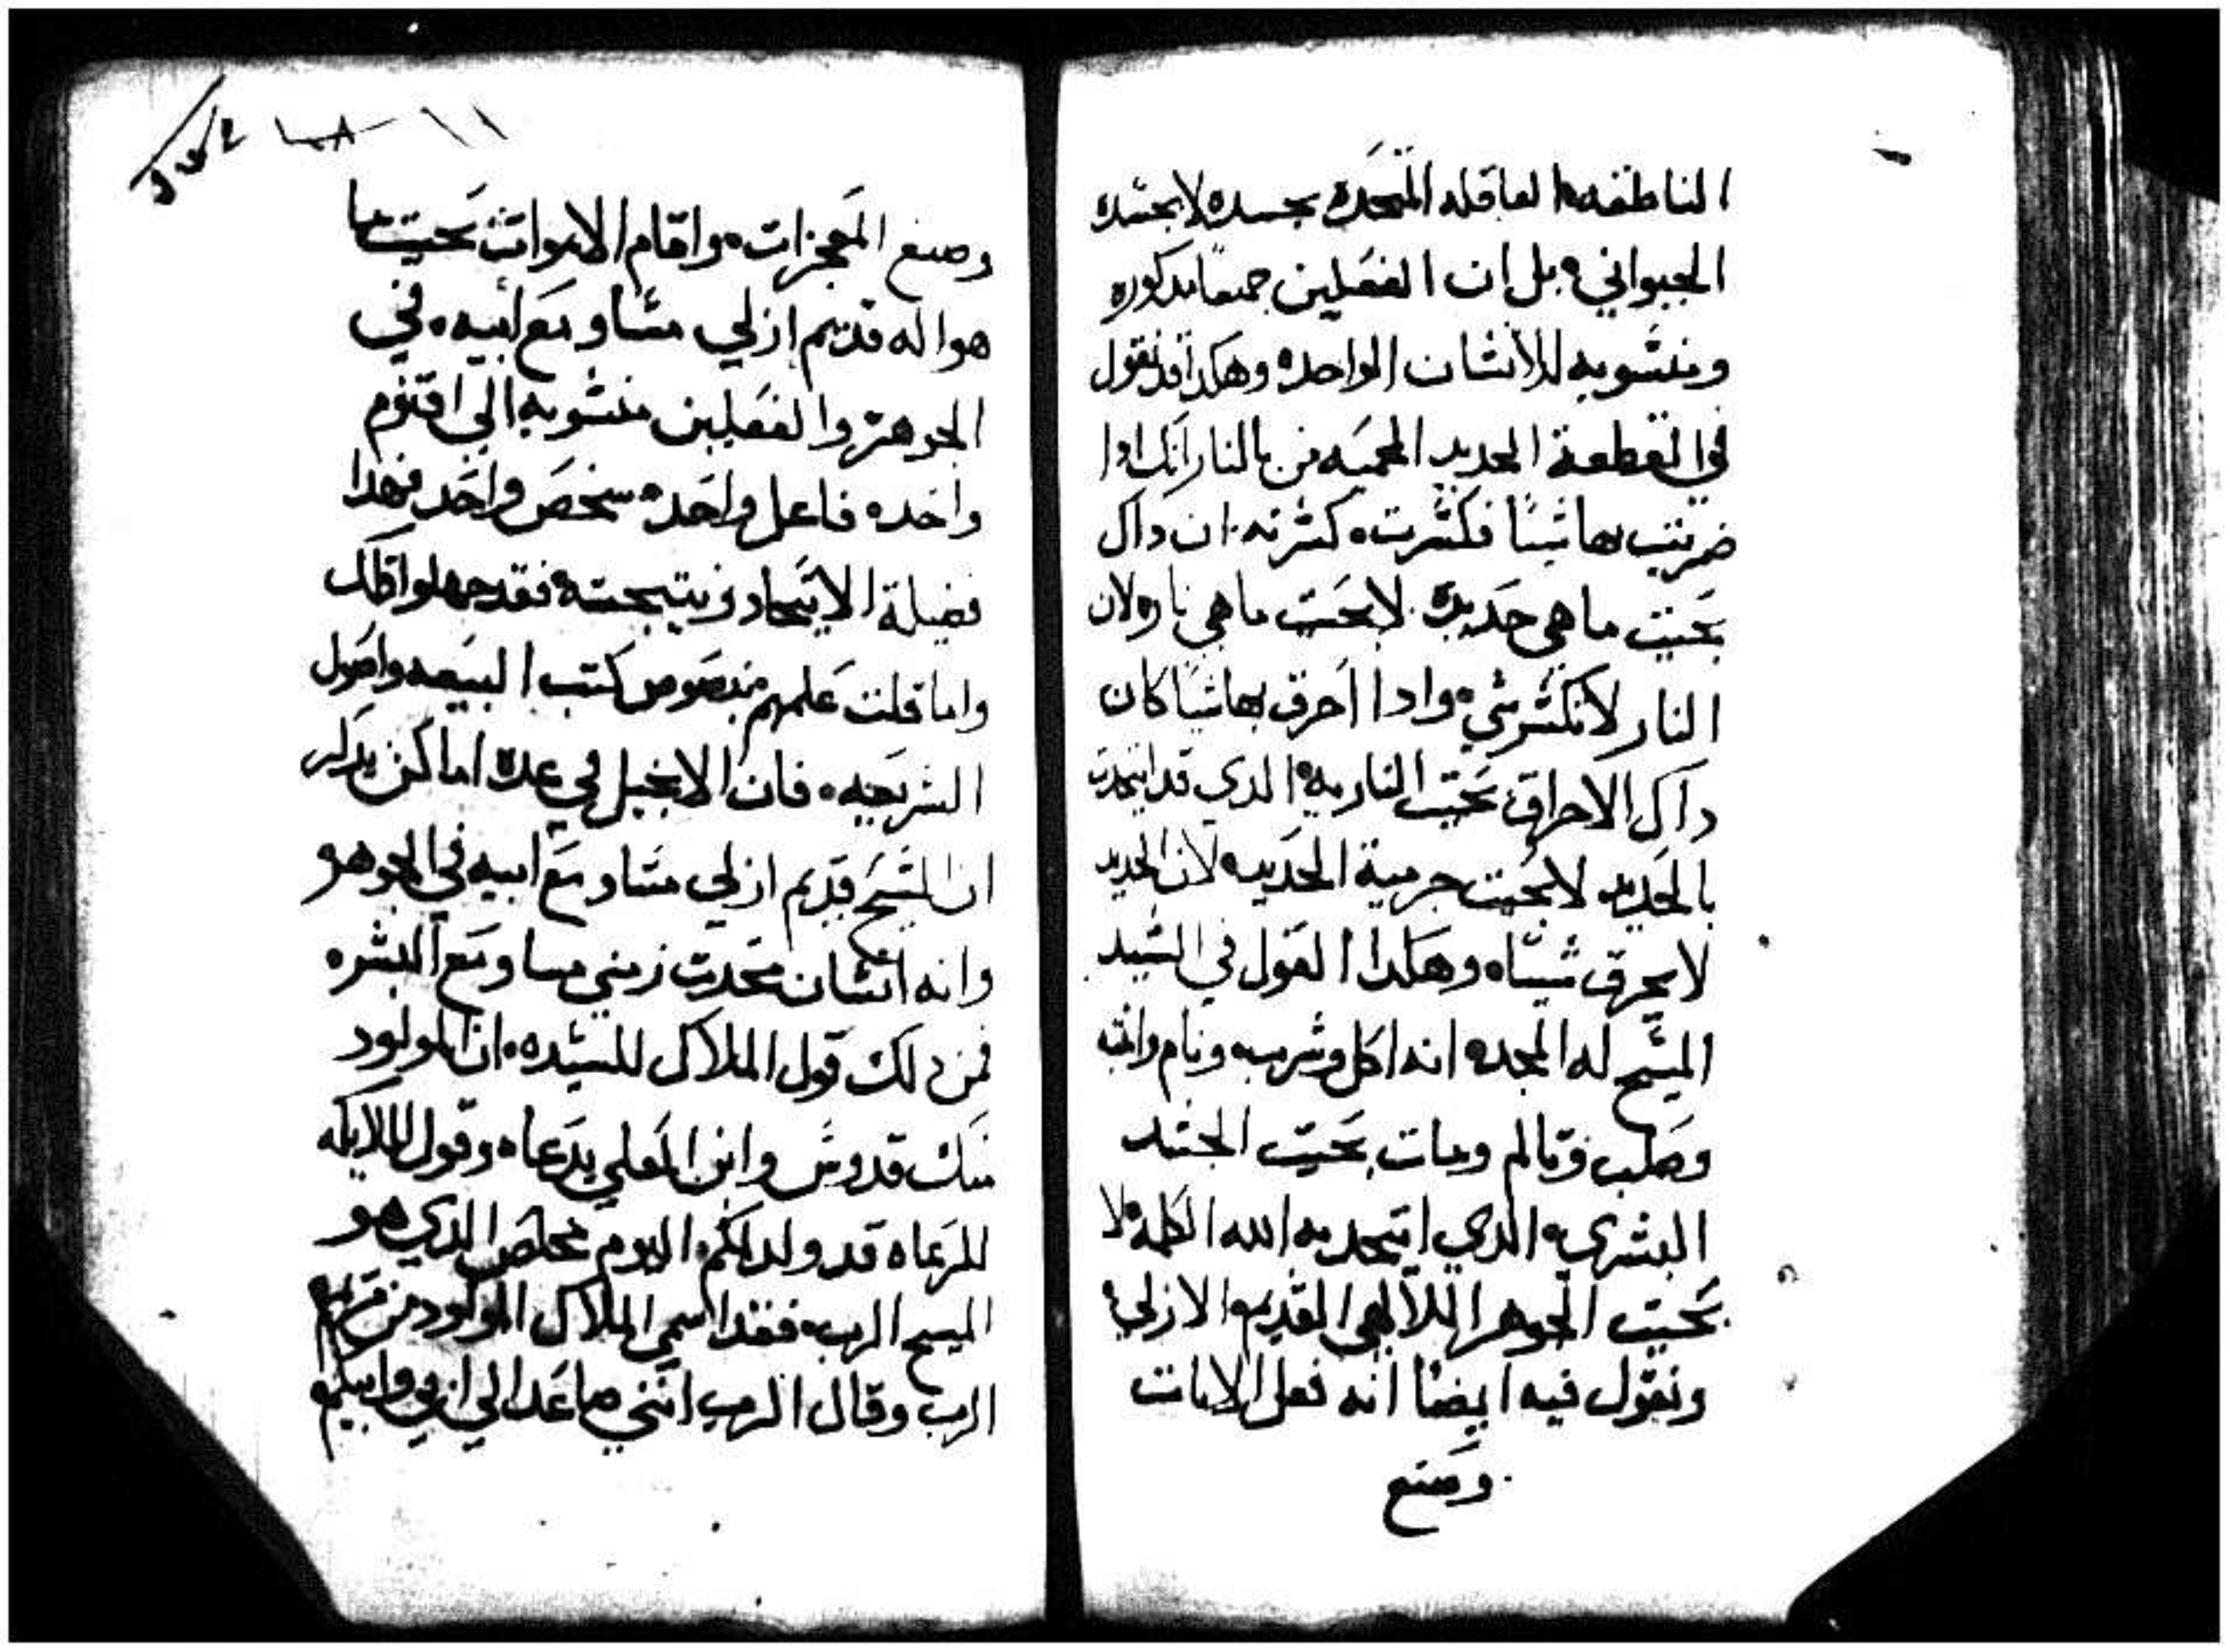 الناطقه العاقله المتحده بجسده لا بجسده
الحيواني بل ان الفعلين جميعًا مدكوره
ومنسوبه للانسان الواحده وهكدا قد نقول
في القطعة الحديد المحميه من بالنار انك ادا
ضربت بها شيئًا فكسرت كسرته ان داك
بحيت ما هي حديده لا بحيت ما هي ناره لان
النار لا تكسر شي وادا احرق بها شيًا كان
داك الاحراق بحيت الناريه الدي قد اتحدت
بالحديد لا بحيت جرمية الحديد لان الحديد
لا يحرق شيئاه وهكدا القول في السيد
المسيح له المجده انه اكل وشرب ونام وانه
وصلب وتالم ومات بحيت الجسد
البشري الدي اتحد به الله الكلمه لا
بحيت الجوهر اللالهي القديم الازلي
ونقول فيه ايضًا انه فعل الايات
وصنع
وصنع المعجزات واقام الاموات بحيت ما
هو اله قديم ازلي مساو مع ابيه في
الجوهر والفعلين منسوبه الي اقنوم
واحده فاعل واحده سخص واحد فهدا
فضيلة الاتحاد ونتيجته فقد جهلوا داك
واما قلت علمهم بنصوص كتب البيعه واصول
الشريعه فان الانجيل في عدة اماكن يدكر
ان المسيح قديم ازلي مساو مع ابيه في الجوهر
وانه انسان محدت زمني مساو مع البشره
فمن دلك قول الملاك للسيده ان المولود
منك قدوس وابن العلي يدعاه وقول الملايكه
للرعاه قد ولد لكم اليوم مخلص الدي هو
المسيح الرب فقد اسمي الملاك المولود من مريم
الرب وقال الرب انني صاعد الي ابي وابيكم